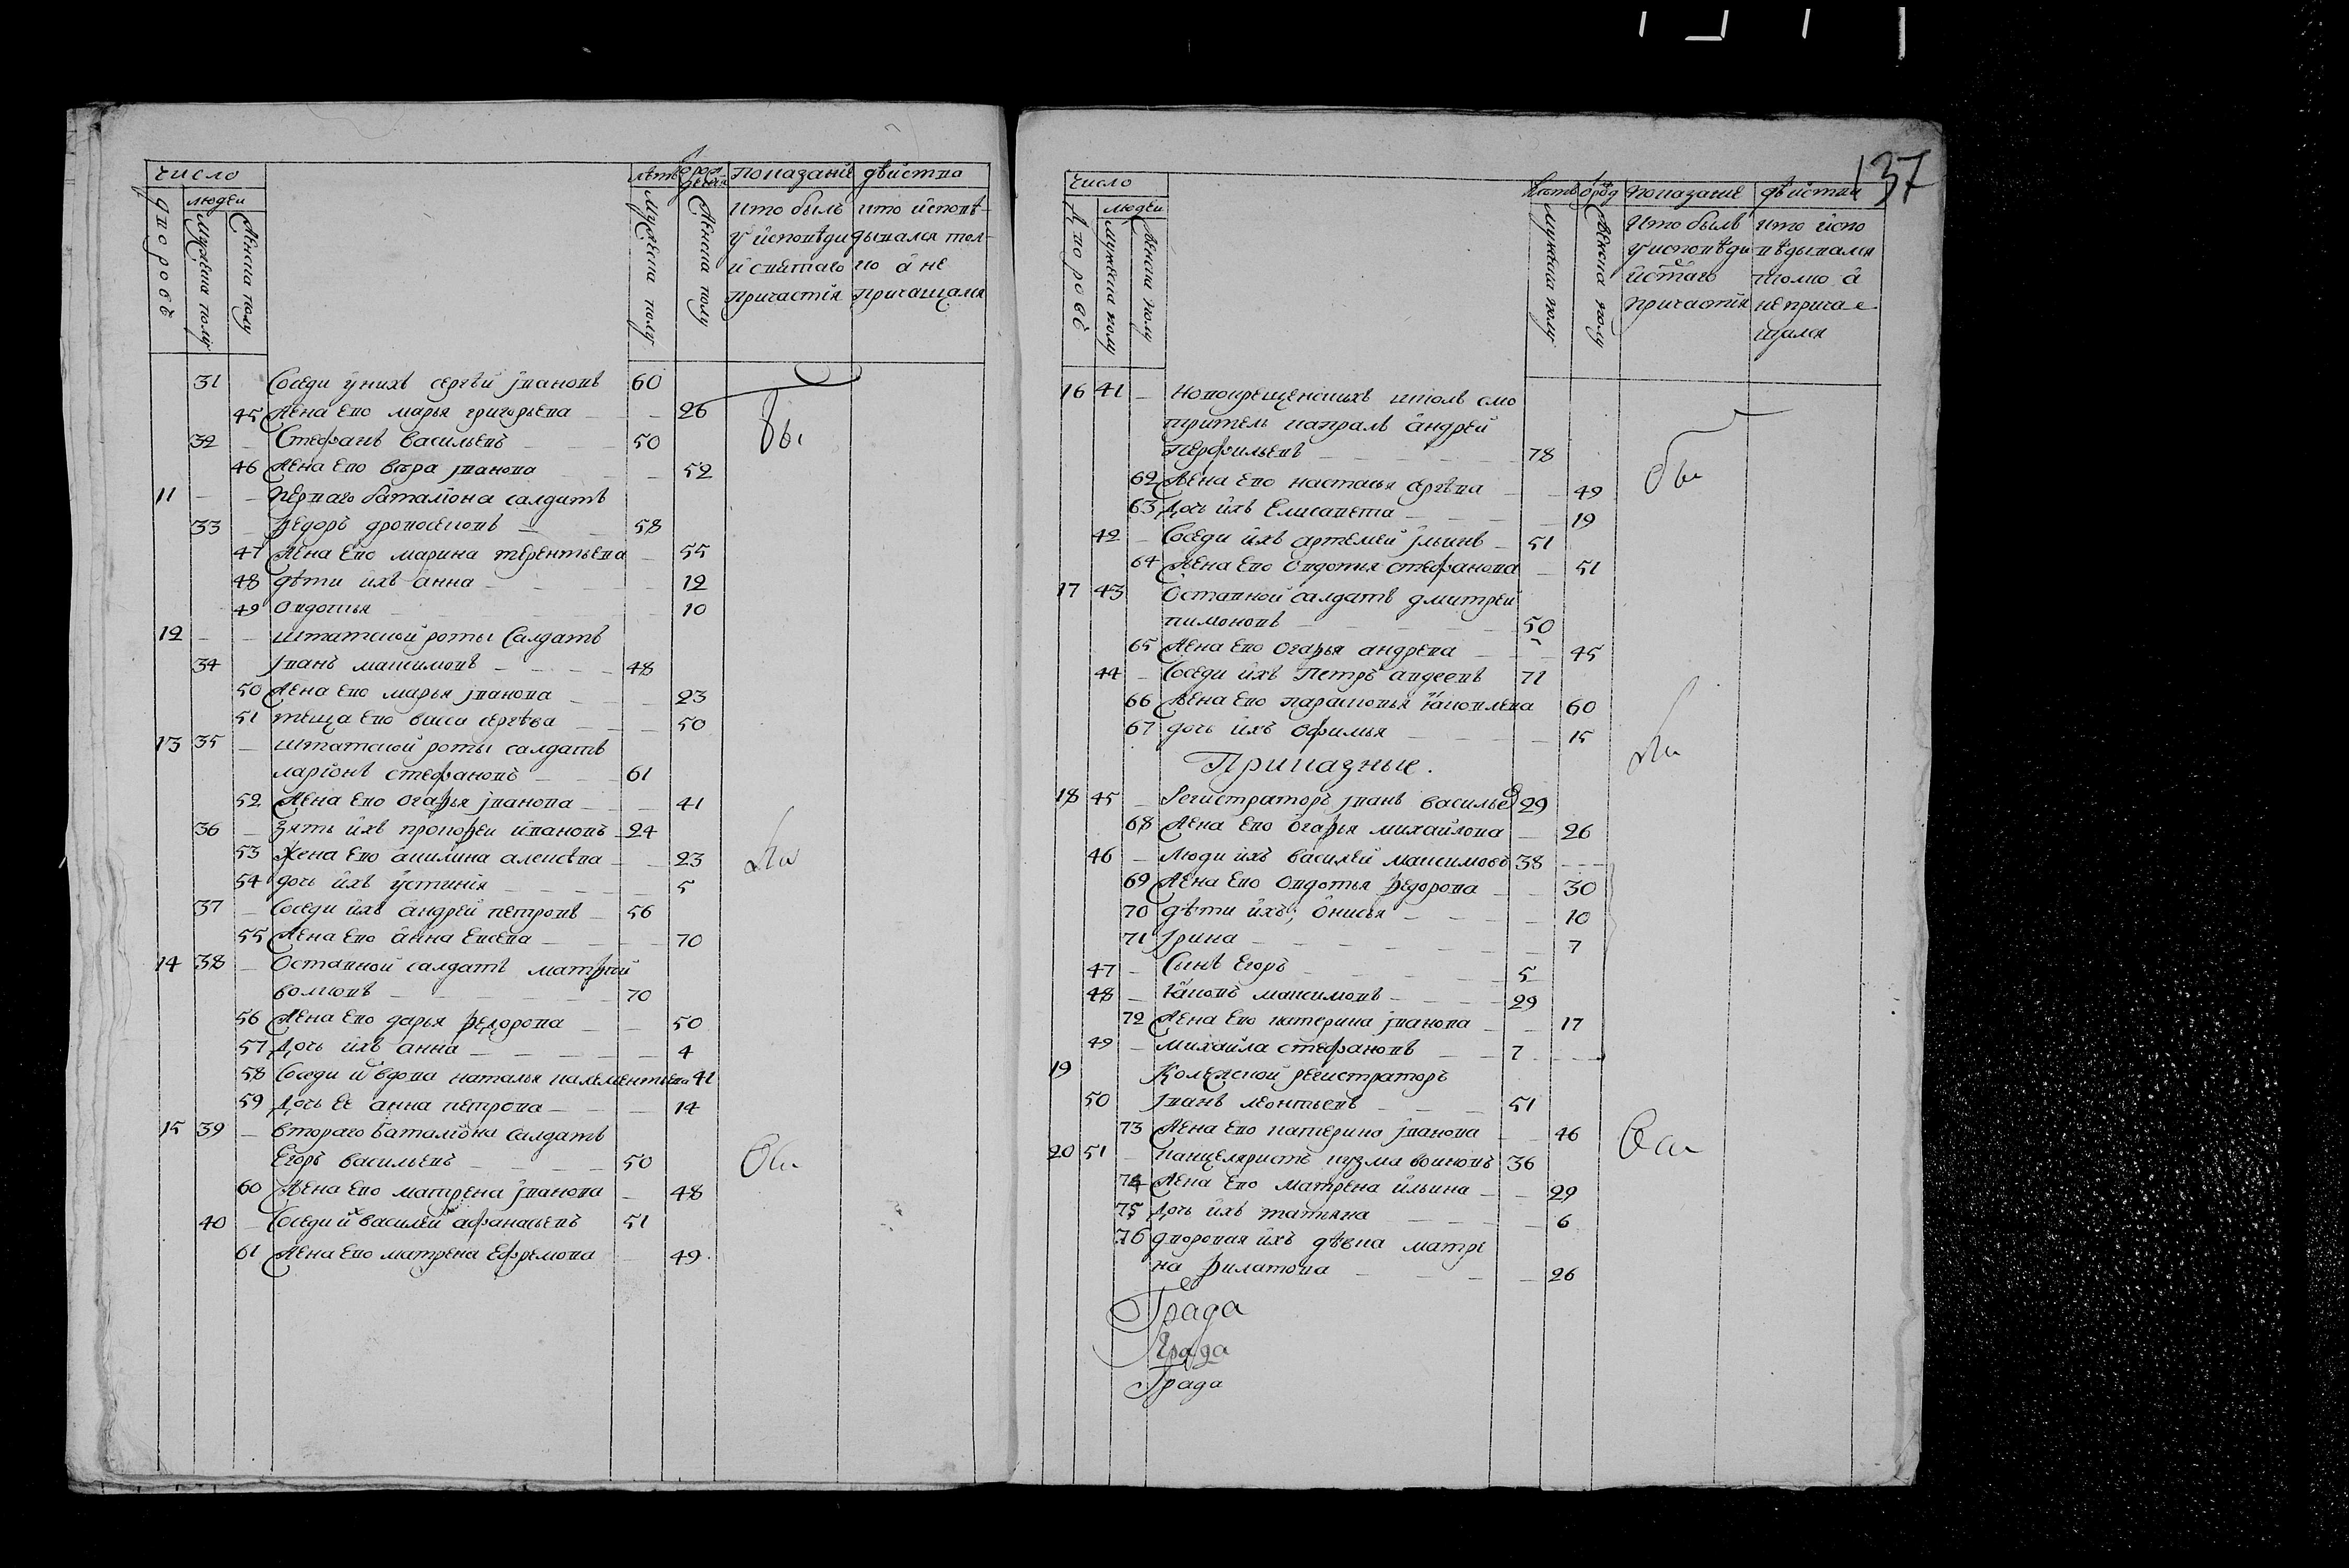 число
людей
дворовъ
мужеска полу
женска полу
летъ
мужеска полу
женска полу
показание действа
кто былъ кто исповѣ-
у исповѣди дывался тол-
и святаго ко а не
причастія причащался
31 Соседи у нихъ сергѣй Ївановъ 60
45 жена ево марья григорьева 26
32 Стефанъ васильевъ 50
46 жена ево вѣра Їванова 52
11 перваго баталіона салдатъ
33 Ѳедоръ 58
47 жена ево марина терентьева 55
48 дѣти ихъ анна 12
49 овдотья 10
12 штатской роты Салдатъ
34 Їванъ максимовъ 48
50 жена ево марья Їванова 23
51 теща ево васа сергѣва 50
13 35 штатской роты салдатъ
ларіонъ стефановъ 61
52 жена ево огаѳья Їванова 41
36 зять ихъ прокоѳеи ивановъ 24
53 жена ево акилина алексѣва 23
54 дочь ихъ устинія 5
37 соседи ихъ андрей петровъ 56
55 жена ево анна евсева 70
14 38 Оставной салдатъ матѳей
волковъ 70
56 жена ево дарья ѳедорова 50
57 дочь ихъ анна 4
58 Соседи и вдова наталья калементьева 41
59 дочь ее анна петрова 14
15 39 втораго баталіона салдатъ
Егоръ васильевъ 50
60 жена ево матрена Їванова 48
40 Соседи и василей афанасьевъ 51
61 жена ево матрена Ефремова 49
137
число
людей
дворовъ
мужеска полу
женска полу
летъ
мужеска полу
женска полу
показание действа
кто былъ кто испо
у исповѣди вѣдывался
и стаго токмо а
причастія не прича-
щался
16 41 новокрещенскихъ школъ смо
тритель капралъ андрей
перфильевъ 78
62 жена ево настасья сергѣва 49
63 дочь ихъ Елисавета 19
42 Соседи ихъ артемей Їльинъ 51
64 жена ево овдотья стефанова 51
17 43 Оставной салдатъ дмитрей
пимоновъ 50
65 жена ево огаѳья андрева 45
44 Соседи ихъ Петръ авдеевъ 71
66 жена ево парасковья яковлева 60
67 дочь ихъ офимья 15
Приказные.
18 45 Регистраторъ Їванъ василье 29
68 жена ево огаѳья михайлова 26
46 люди ихъ василей максимовъ 38
69 жена ево овдотья ѳедорова 30
70 дѣти ихъ; онисья 10
71 Їрина 7
47 Сынъ Егоръ 5
48 яковъ максимовъ 29
72 жена ево катерина Їванова 17
49 михайла стефановъ 7
19 Колежской регистраторъ
50 Їванъ леонтьевъ 51
73 жена ево катерина Їванова 46
20 51 канцеляристъ кузма воиновъ 36
74 жена ево матрена ильина 29
75 дочь ихъ татьяна 6
76 дворовая ихъ дѣвка матре
на ѳилатова 26
Града
Града
Града